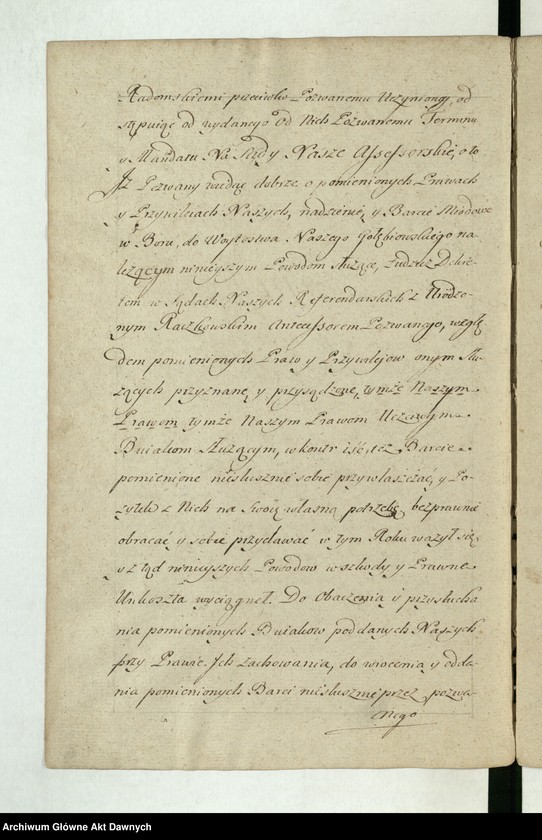 Radomskiemi przeciwko Pozwanemu Uczynioney, od
stępuiąc od wydanego od Nich Pozwanemu Terminu
y Mandatu Na Sądy Nasze Assessorskie, o to
Iż Pozwany wiedząc dobrze o pomienionych Prawach
y Przywileiach Naszych, nadzienie, y Barcie Miodowe
w Boru, do Woytostwa Naszego Gołębiowskiego na
leżącym ninieyszym Powodom służące, tudzież Dekre
tem w Sądach Naszych Referendarskich z Urodzo
nym Raczkowskim Antecessorem Pozwanego, wzglę
dem pomienionych Praw y Przywilejow onym słu
żących przyznane y przysądzone, tymże Naszym
Prawom tymże Naszym Prawom Uczciwym
Bwiakom służącym, w kontr iść, też Barcie
pomienione niesłusznie sobie przywłaszczać, y Po
zytek z Nich na Swoię własną potrzebę bezprawnie
obracać y sobie przydawać w tym Roku ważył się,
y z tąd ninieyszych Powodow w szkody y Prawne
Unkoszta wyciągnął. Do Obaczenia y przysłucha
nia pomienionych Bwiakow poddanych Naszych
przy Prawie Ich zachowania, do wrocenia y odda
nia pomienionych Barci niesłusznie przez pozwa
nego
Archiwum Główne Akt Dawnych